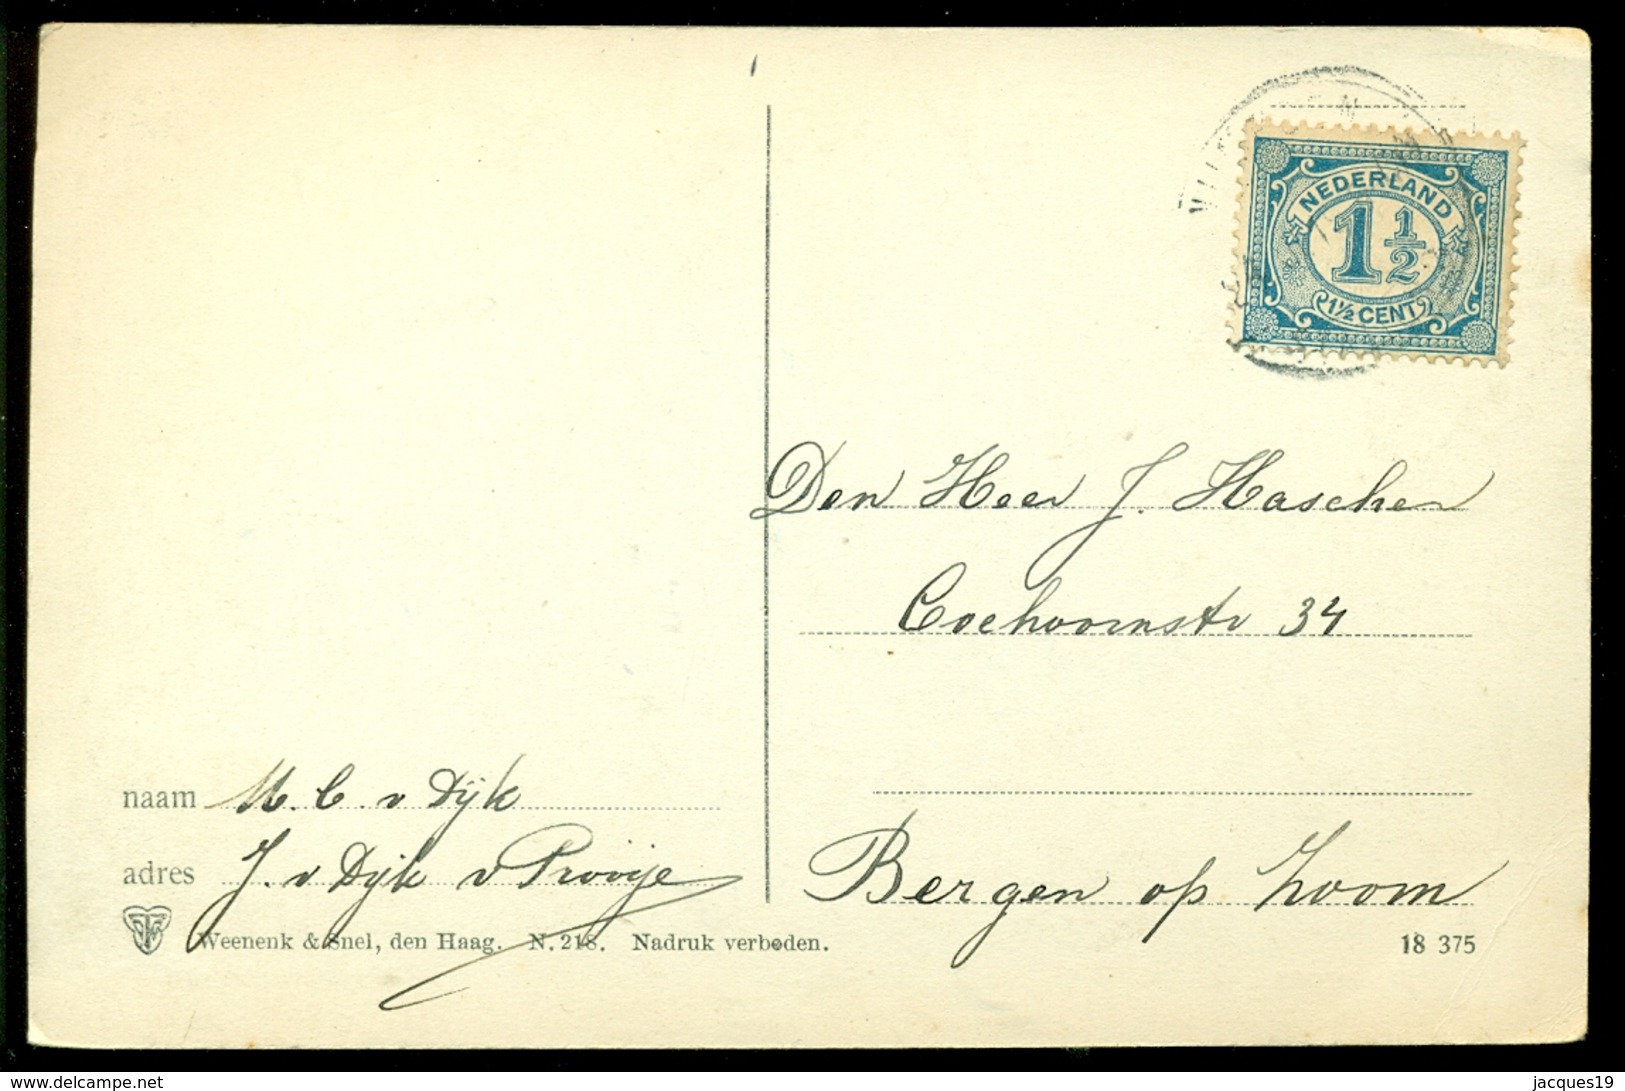 NEDERLAND
1 1/2
1½ CENT
Den Heer J. Hascher
Coehoornstr 34
Bergen op Zoom
naam M. C. v Dijk
adres J. v Dijk v Prooije
Weenenk & Snel, den Haag. N. 218. Nadruk verboden.
18 375
delcampe.net
jacques19